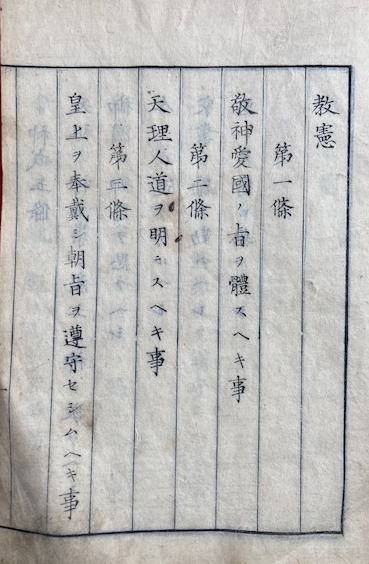 教憲
第一條
敬神愛國ノ旨ヲ體スヘキ事
第二條
天理人道ヲ明ニスヘキ事
第三條
皇上ヲ奉戴シ朝旨ヲ遵守セシムヘキ事